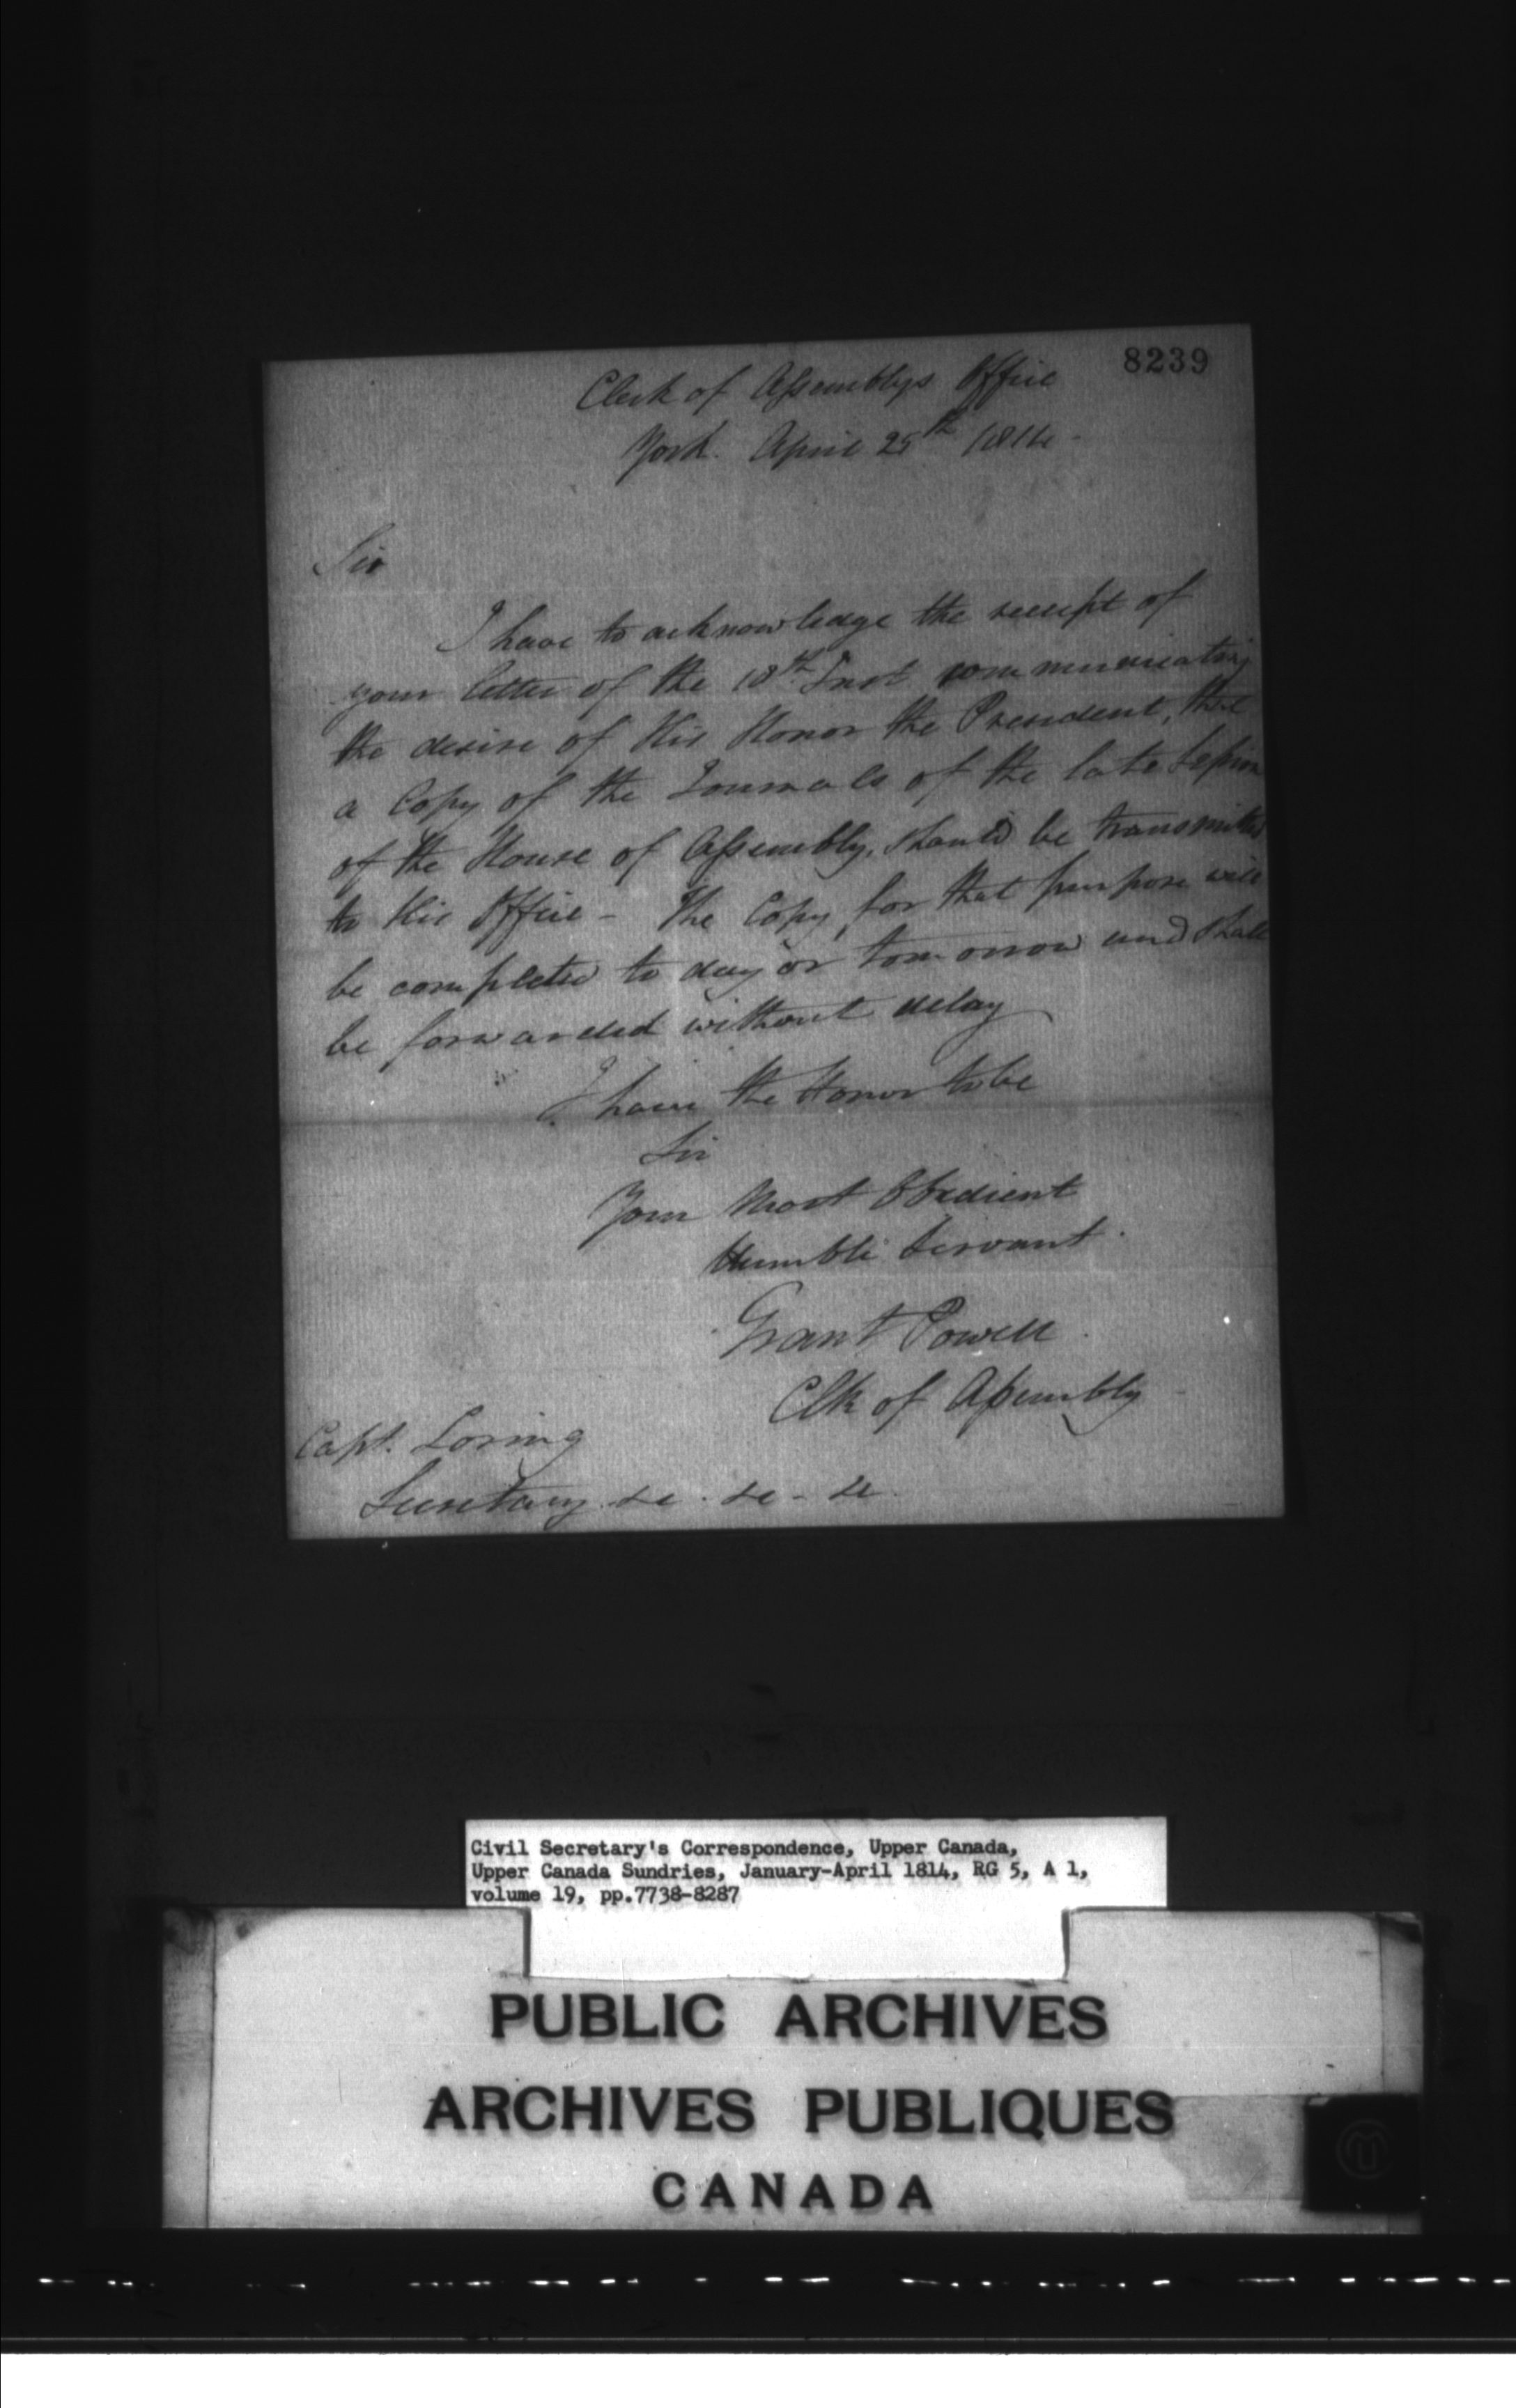 8239
Clerk of Assemblys Office
York. April 25th 1814 -
Sir
I have to acknowledge the receipt of
your letter of the 18th Inst communicating
the desire of His Honor the President, that
a Copy of the Journals of the late Session
of the House of Assembly, should be transmitted
to His Office - The Copy for that purpose will
be completed to day or tomorrow and shall
be forwarded without delay
I have the Honor to be
Sir
Your Most Obedient
Humble Servant.
Grant Powell.
Clk of Assembly
Capt. Loring
Secretary &c. &c - &c.
Civil Secretary's Correspondence, Upper Canada,
Upper Canada Sundries, January-April 1814, RG 5, A 1,
volume 19, pp.7738-8287
PUBLIC ARCHIVES
ARCHIVES PUBLIQUES
CANADA